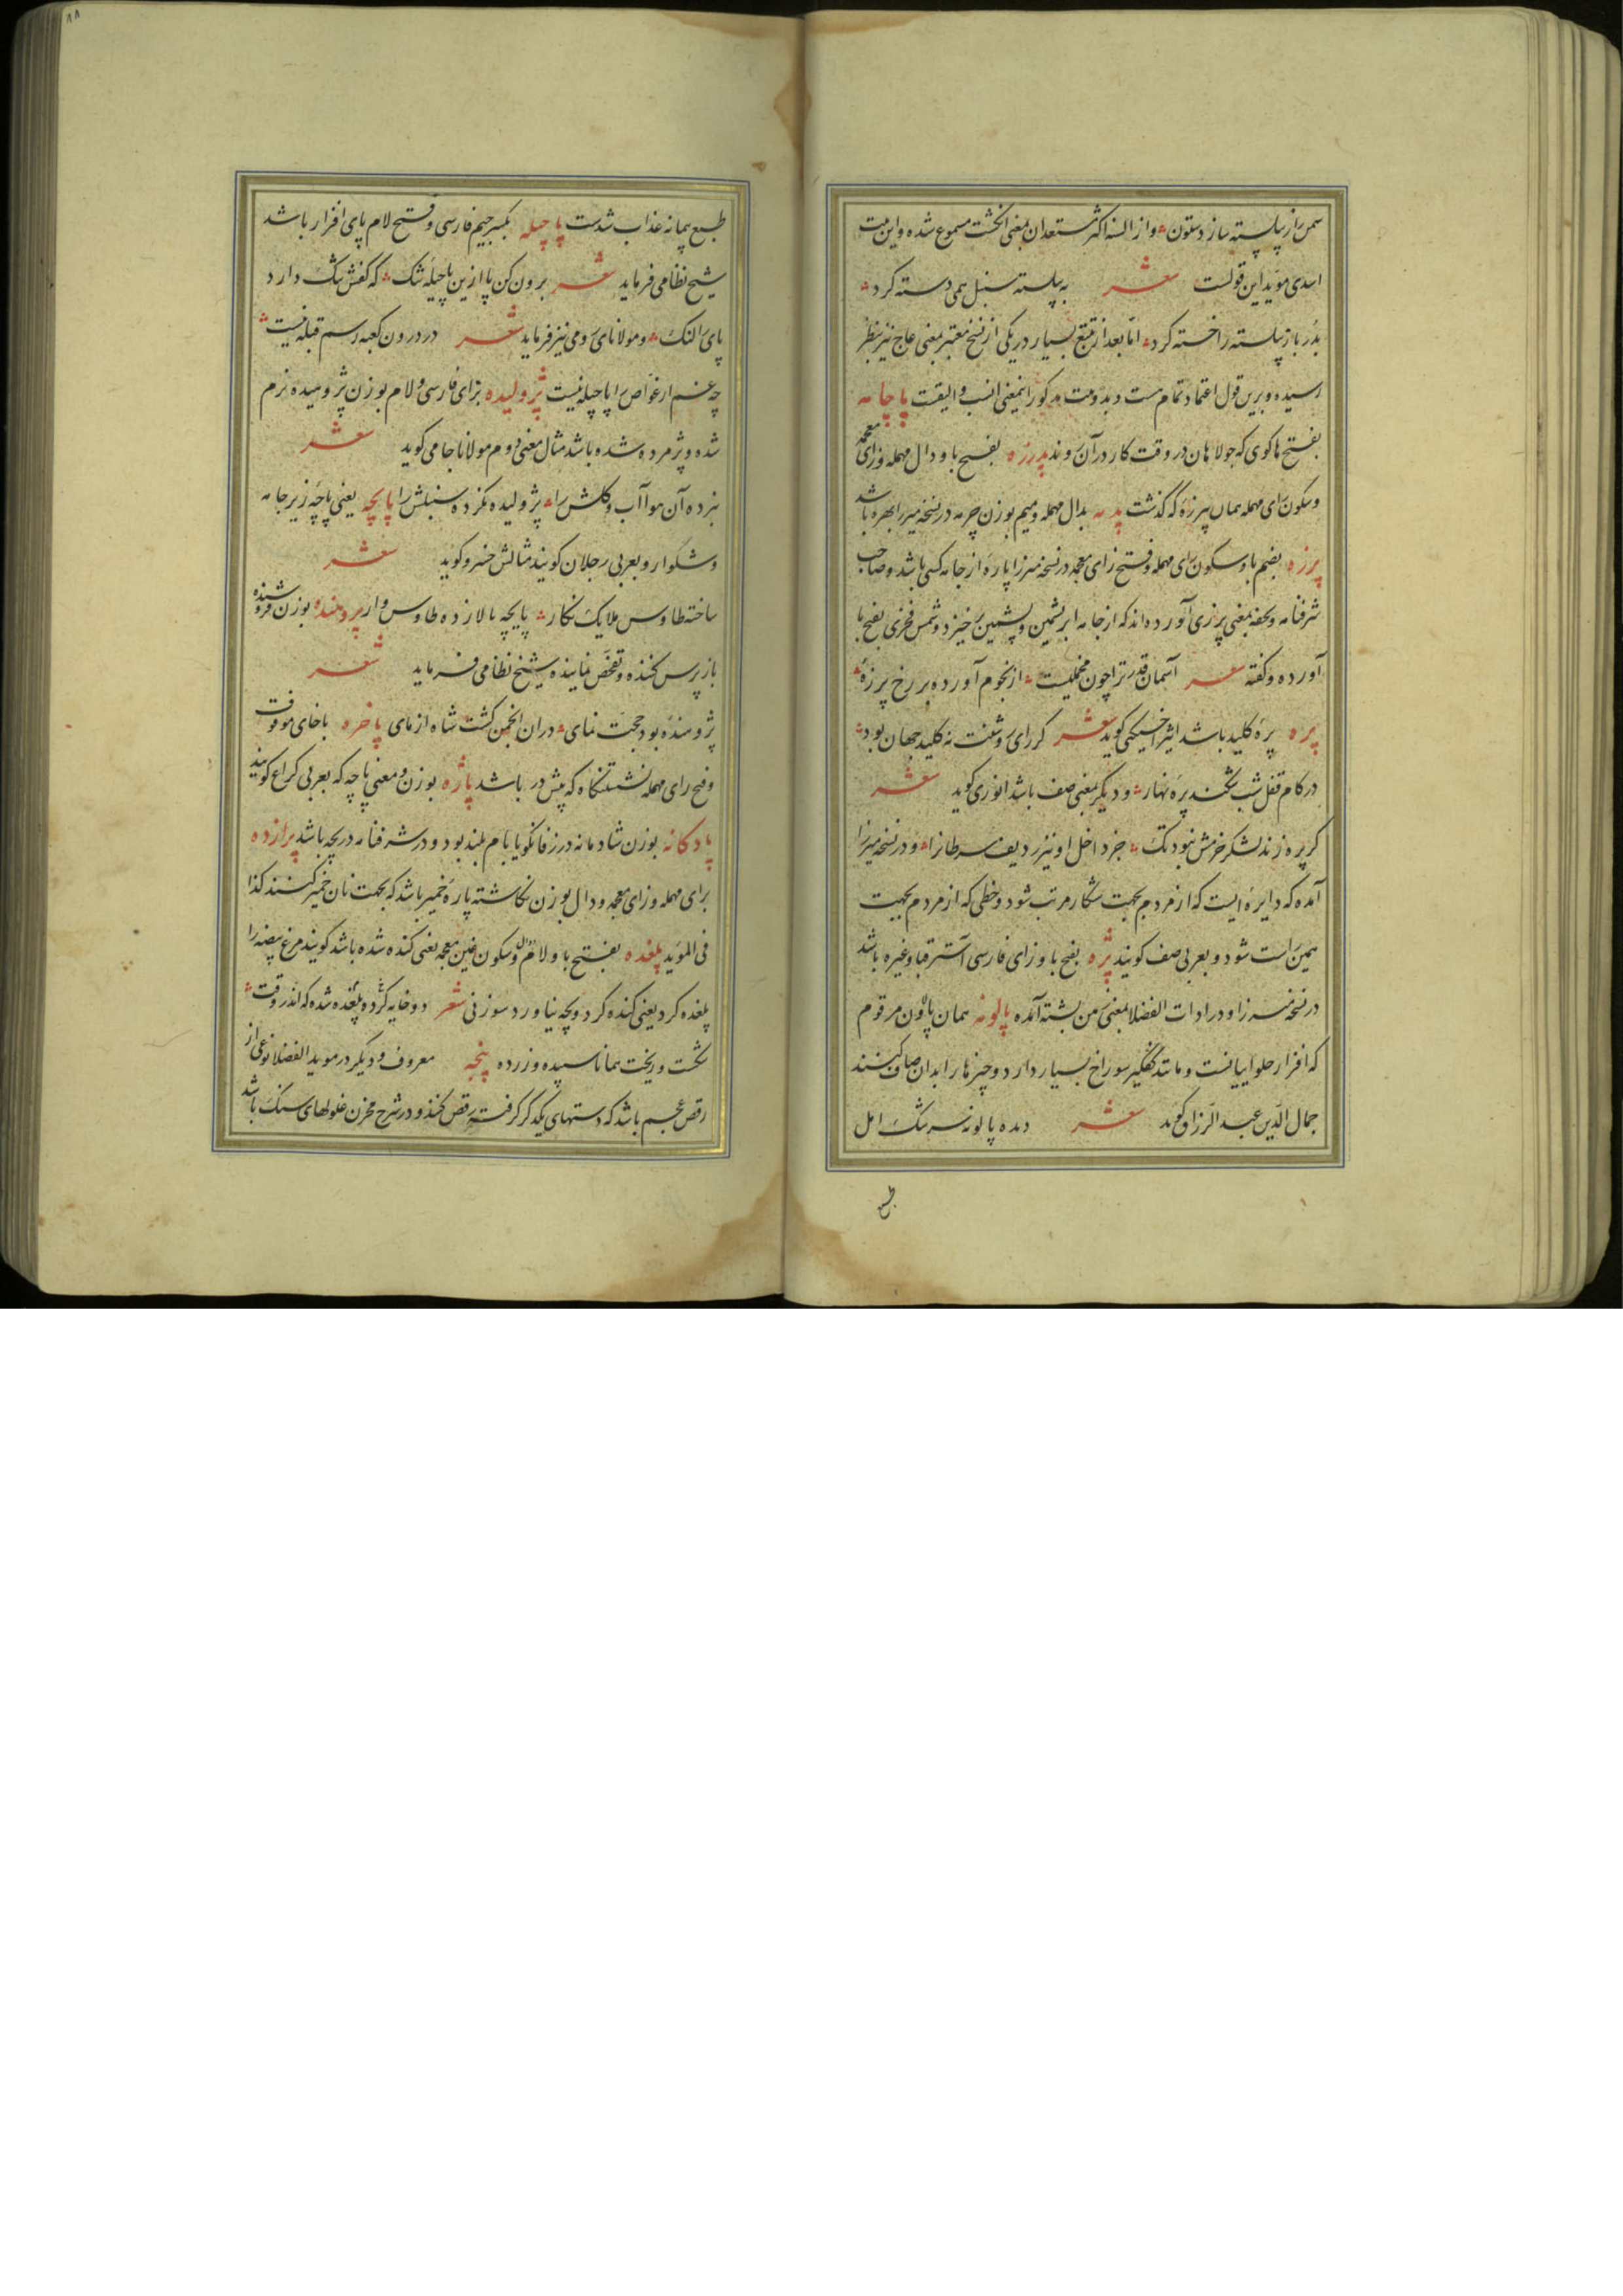 سمن را از پیلسته سازد ستون و از السنه اکثر مستعدان بمعنی انکشت مسموع شده و این بیت
اسدی موید این قولست شعر به پیلسته سنبل همی دسته کرد
بدر باز پیلسته را خسته کرد اما بعد از تتبع بسیار در یکی از نسخ معتبر بمعنی عاج نیز بنظر
رسیده و برین قول اعتماد تمام هست و بدو بیت مذکور اینمعنی انسب و الیقست پاچامه
بفتح ها کوی که جولاهان در وقت کار در آن روند پدرزه بفتح با و دال مهمله و زای معجمه
و سکون رای مهمله همان پیرزه که گذشت پدمه بدال مهمله و میم بوزن چرمه در نسخه میرزا بهره باشد
پرزه بضم با و سکون رای مهمله و فتح زای معجمه در نسخه میرزا پاره از جامه کسی باشد و صاحب
شرفنامه و تحفه بمعنی پرزی آورده اند که از جامه ابریشمین و پشمین برخیزد و شمس فخری بفتح با
آورده و کفته شعر آسمان قدر ترا چون مخملیست از نجوم آورده بر رخ پرزه
پره پره کلید باشد اثیر اخسیکتی کوید شعر کر رای روشنت نه کلید جهان بود
در کام قفل شب شکند پره نهار و دیکر بمعنی صف باشد انوری کوید شعر
کر پره زند لشکر خرمش نبود تک جز داخل او نیز ردیف سرطانرا و در نسخه میرزا
آمده که دایره ایست که از مردم بجهت شکار مرتب شود و خطی که از مردم بجهت
همین راست شود و بعربی صف کویند پژه بفتح با و زای فارسی آستر قبا و غیره باشد
در نسخه میرزا و در ادات الفضلا بمعنی زمین پشته آمده پالونه همان پالون مرقوم
که افزار حلواییانست و مانند کفگیر سوراخ بسیار دارد و چیزها را بدان صاف کنند
جمال الدین عبد الرزاق کوید شعر دیده پالونه سرشک امل
طبع
طبع پیمانه عذاب شدست پاچیله بکسر جیم فارسی و فتح لام پای افزار باشد
شیخ نظامی فرماید شعر برون کن پا ازین پاچیله تنک که کفش تنک دارد
پای را لنک و مولانای رومی نیز فرماید شعر در درون کعبه رسم قبله نیست
چه غم ار غواص را پاچیله نیست پژولیده بزای فارسی و لام بوزن پژوهیده نرم
شده و پژمرده شده باشد مثال معنی دوم مولانا جامی کوید شعر
نبرده آن مو آب و کلش را پژولیده نکرده سنبلش را پایچه یعنی پاچه زیر جامه
و شلوار و بعربی رجلان کویند مثالش خسرو کوید شعر
ساخته طاوس ملایک نکار پایچه بالا زده طاوس وار پردمنده بوزن فروشنده
بازپرس کننده و تفحص نماینده شیخ نظامی فرماید شعر
پژوهنده بود حجت نمای در آن انجمن کشت شاه ازمای پاخره باخای موقوف
و فتح رای مهمله نشستنگاه که پیش در باشد پاژه بوزن و معنی پاچه که بعربی کراع کویند
پادکانه بوزن شادمانه در زفانگویا بام بلند بود و در شرفنامه دریچه باشد پرازده
برای مهمله و زای معجمه و دال بوزن نکاشته پاره خمیر باشد که بجهت نان خمیر کنند کذا
فی المؤید پلغده بفتح با و لام و دال و سکون غین معجمه یعنی کنده شده باشد کویند مرغ بیضه را
پلغده کرد یعنی کنده کرد و بچه نیاورد سوزنی شعر دو خایه کرده پلغده شده که اندر وقت
شکست و ریخت همانا سپیده و زرده پنجه معروف و دیکر در موید الفضلا نوعی از
رقص عجم باشد که دستهای یکدیکر گرفته رقص کنند و در شرح مخزن غلولهای سنک باشد